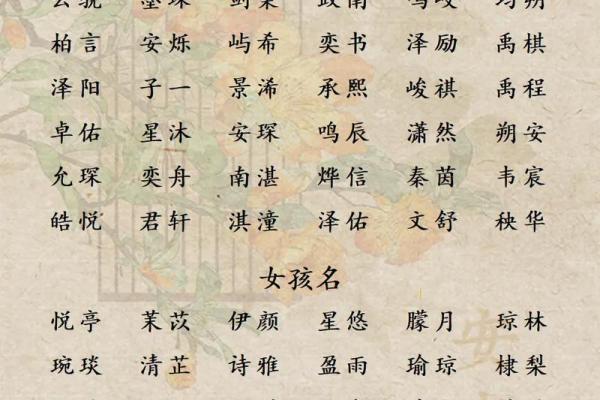 柏言 安烁 屿希 奕书 泽励 禹棋
泽阳 子一 景浠 承熙 峻祺 禹程
卓佑 星沐 安琛 鸣辰 潇然 朔安
允琛 奕舟 南湛 烨信 秦茵 韦宸
皓悦 君轩 淇潼 泽佑 文舒 秧华
女孩名
悦亭 茉苡 伊颜 星悠 朦月 琼林
琬琰 清芷 诗雅 盈雨 瑜琼 棣梨
安